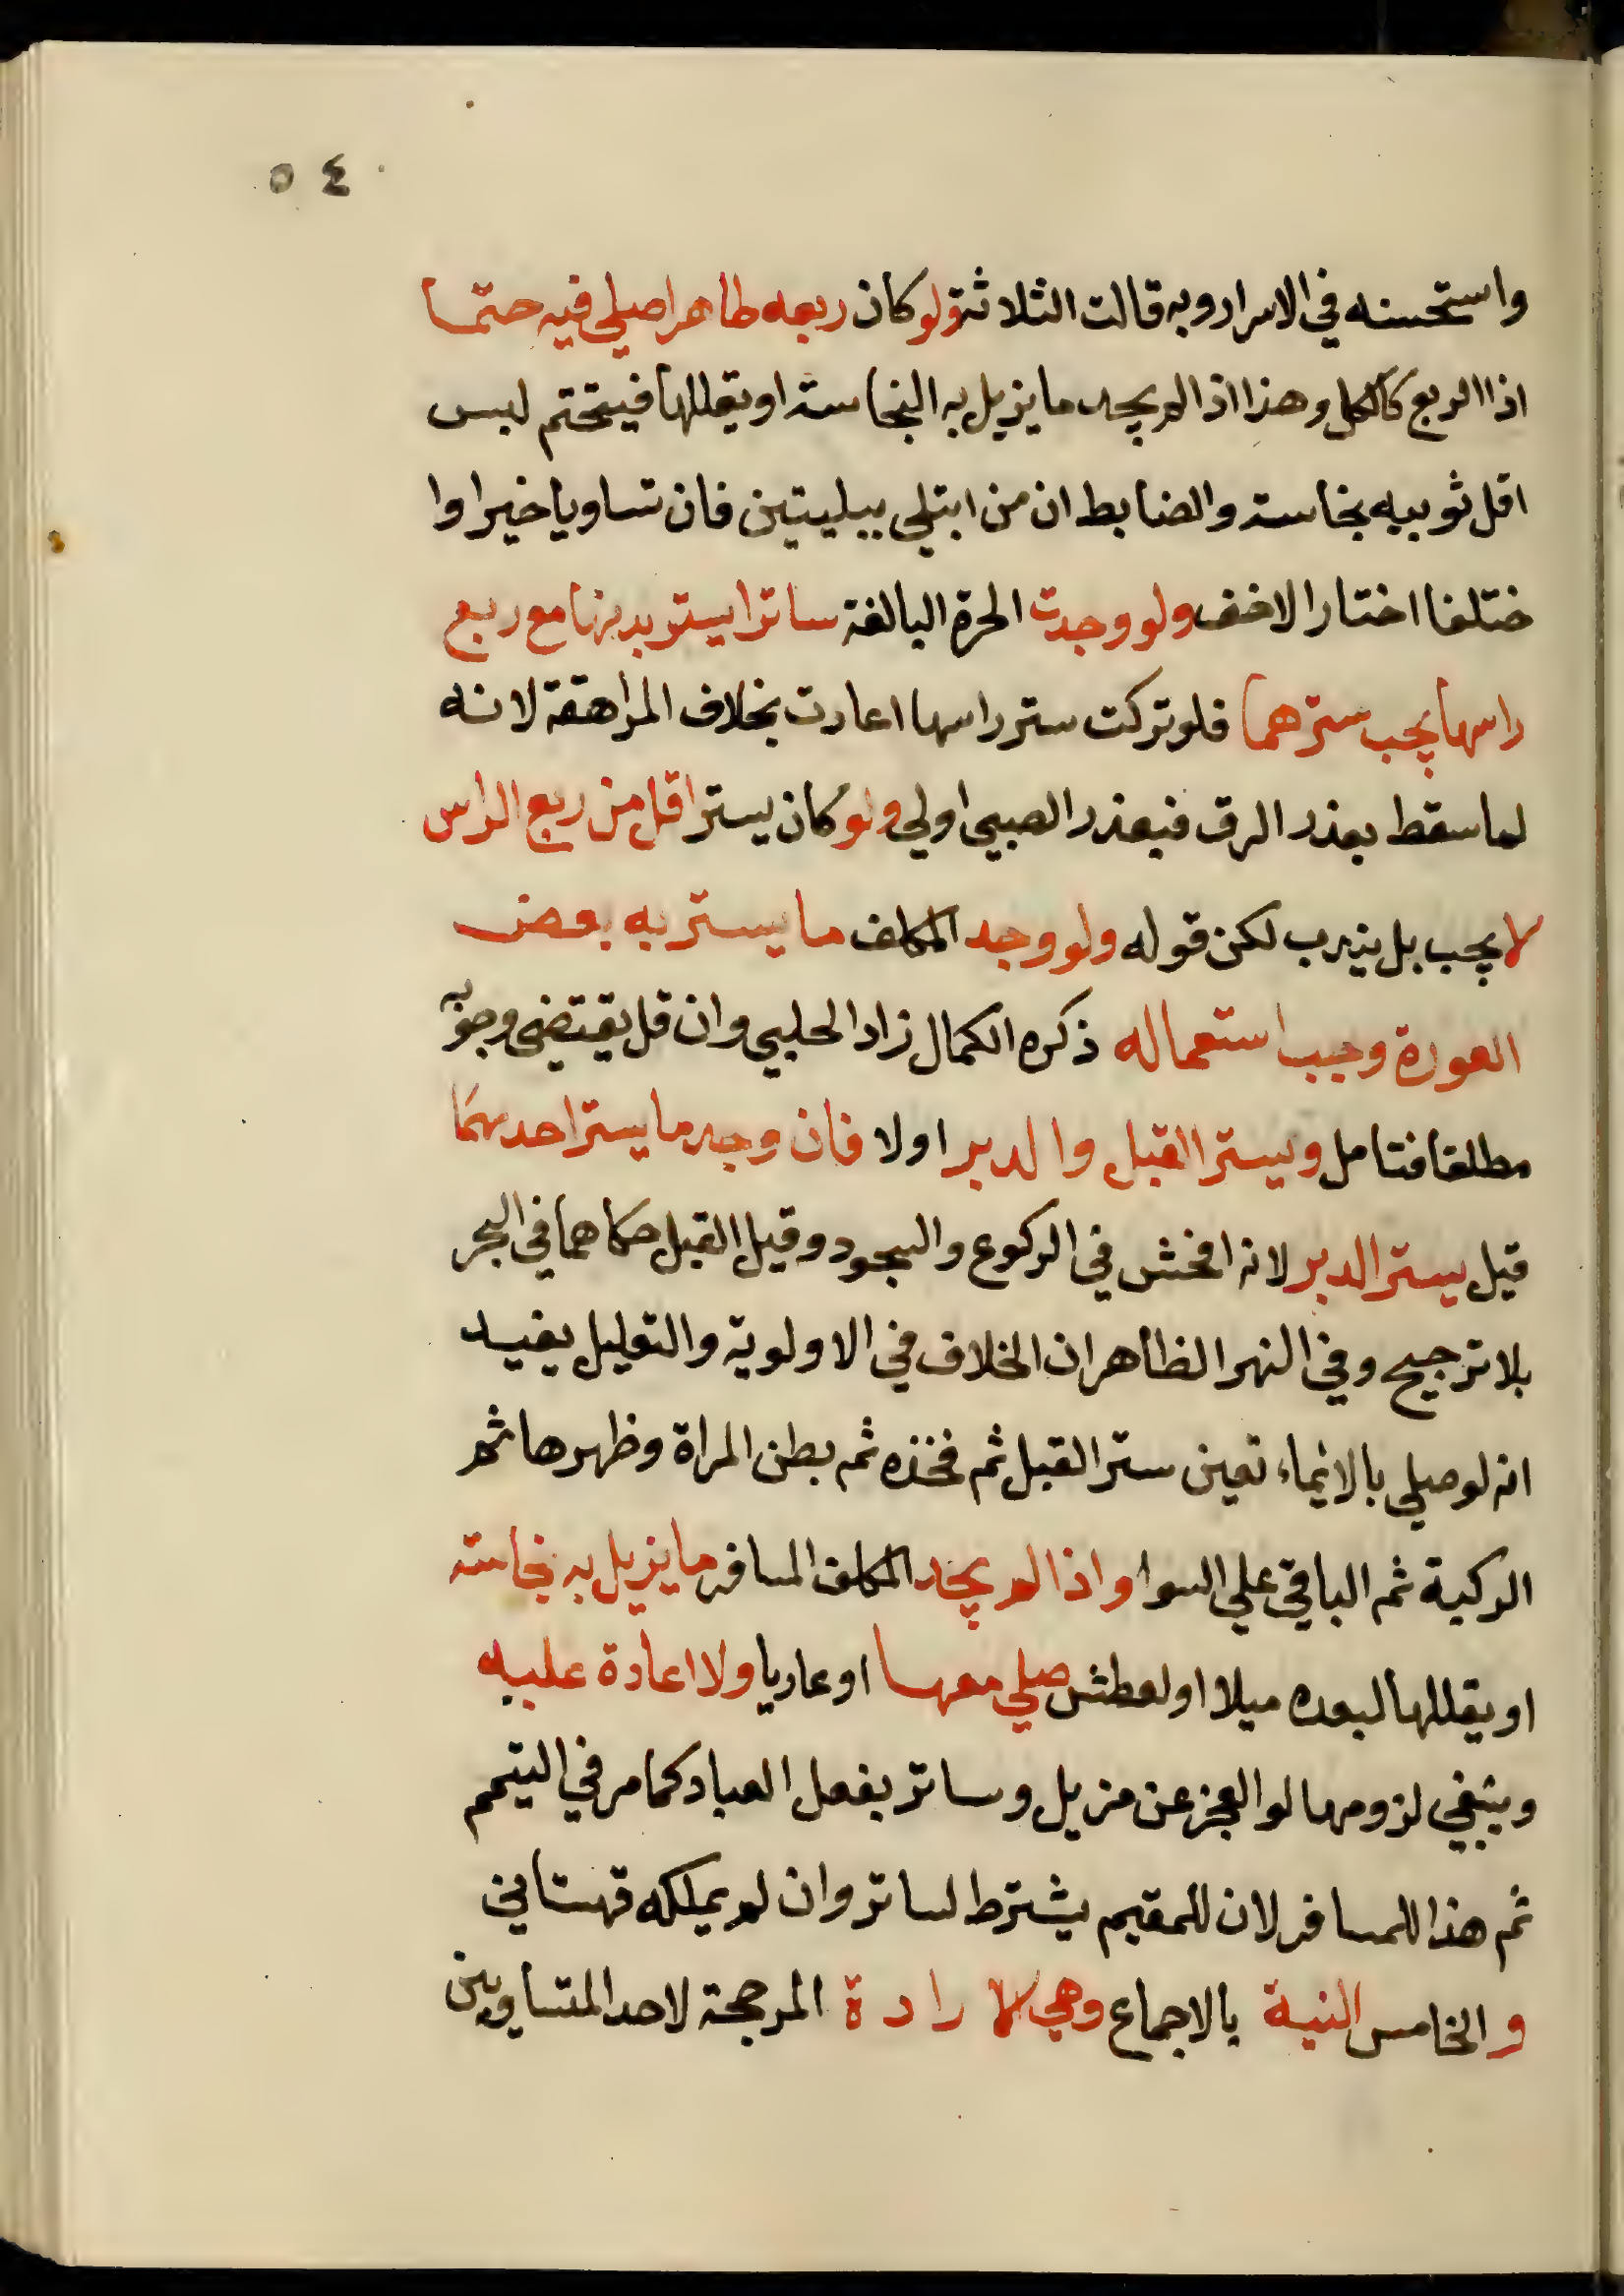 ٥٤
واستحسنه في الاسرار وبه قالت الثلاثة ولو كان ربعه طاهرا صلي فيه حتما
اذ الربع كالكل وهذا اذا لم يجد ما يزيل به النجاسة او يقللها فيتحتم لبس
اقل ثوبيه نجاسة والضابط ان من ابتلي ببليتين فان تساويا خير اوا
ختلفا اختار الاخف ولو وجدت الحرة البالغة ساترا يستر بدنها مع ربع
راسها يجب سترهما فلو تركت ستر راسها اعادت بخلاف المراهقة لانه
لما سقط بعذر الرق فبعذر الصبي اولي ولو كان يستر اقل من ربع الراس
لا يجب بل يندب لكن قوله ولو وجد المكلف ما يستر به بعض
العورة وجب استعماله ذكره الكمال زاد الحلبي وان قل يقتضي وجوبه
مطلقا فتامل ويستر القبل والدبر اولا فان وجد ما يستر احدهما
قيل يستر الدبر لانه افحش في الركوع والسجود وقيل القبل حكاهما في البحر
بلا ترجيح وفي النهر الظاهر ان الخلاف في الاولوية والتعليل يفيد
انه لو صلي بالايماء تعين ستر القبل ثم فخذه ثم بطن المراة وظهرها ثم
الركبة ثم الباقي علي السوا واذا لم يجد المكلف المسافر ما يزيل به نجاسته
او يقللها لبعده ميلا او لعطش صلي معها او عاريا ولا اعادة عليه
وينبغي لزومها لو العجز عن مزيل وساتر بفعل العباد كما مر في التيمم
ثم هذا للمسافر لان للمقيم يشترط لساتر وان لم يملكه قهستاني
و الخامس النية بالاجماع وهي لا رادة المرجحة لاحد المتساويين